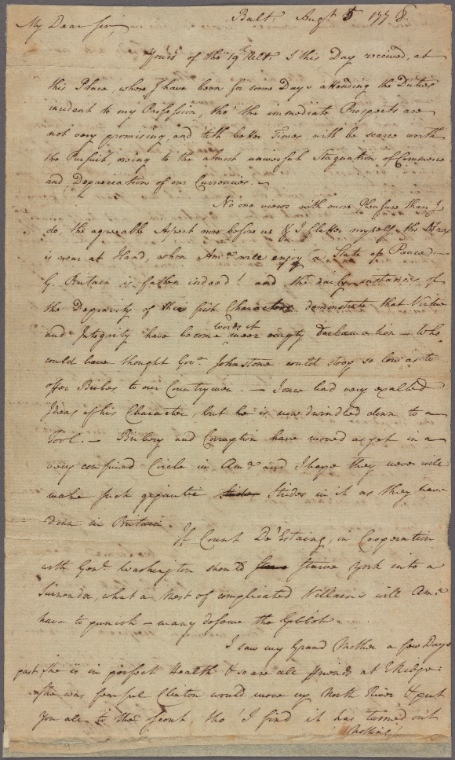 Balt. Augt 5 1778.
My Dear Sir
Yours of the 19th Ulto I this Day received, at
this Place, where I have been for some Days attending the Duties
incident to my Profession, tho' the immediate Prospects are
not very promising, and till better Times will be scarce worth
the Pursuit, owing to the almost universal Stagnation of Commerce
and Depreciation of our Currencies. —
No one views with more Pleasure than I
do the agreeable Aspect now before us & I flatter myself the Day
is near at Hand, when Ama will enjoy a State of Peace —
G. Britain is fallen indeed! and the daily instances of
the Degeneracy of their first Characters demonstrate that Virtue
and Integrity have become words of mear empty Declamation — Who
could have thought Govr Johnstone would stoop so low as to
offer Bribes to our Countrymen. — I once had very exalted
Ideas of his Character, but he is now dwindled down to a
Tool. — Bribery and Corruption have moved as yet in a
very confined Circle in Ama and I hope they never will
make such gigantic Strides in it as they have
done in Britain.
If Count De'Estaing, in Cooperation
with Genl Washington should force York into a
Surrender, what a Nest of complicated Villains will Ama
have to punish — many deserve the Gibbet. —
I saw my Grand Mother a few Days
past She is in perfect Health & so are all friends at
was fearful Clinton would move up North River & put
you all to the Rout, tho' I find it has turned out
otherwise